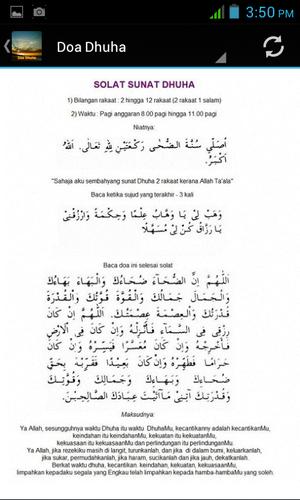 3:50 PM
Doa Dhuha
Doa Dhuha
SOLAT SUNAT DHUHA
1) Bilangan rakaat : 2 hingga 12 rakaat (2 rakaat 1 salam)
2) Waktu : Pagi anggaran 8.00 pagi hingga 11.00 pagi
Niatnya:
اُصَلِّى سُنَّةَ الضُّحٰى رَكْعَتَيْنِ لِلّٰهِ تَعَالَى. اَللهُ
اَكْبَرُ.
"Sahaja aku sembahyang sunat Dhuha 2 rakaat kerana Allah Ta'ala"
Baca ketika sujud yang terakhir - 3 kali
وَهَبْ لِيْ يَا وَهَّابُ عِلْمًا وَحِكْمَةً وَارْزُقْنِيْ
يَا رَزَّاقُ كُنْ لِيْ مُسَهِّلًا
Baca doa ini selesai solat
اَللّٰهُمَّ اِنَّ الضُّحَآءَ ضُحَاءُكَ وَالْبَهَاءَ بَهَاءُكَ
وَالْجَمَالَ جَمَالُكَ وَالْقُوَّةَ قُوَّتُكَ وَالْقُدْرَةَ
قُدْرَتُكَ وَالْعِصْمَةَ عِصْمَتُكَ. اَللّٰهُمَّ اِنْ كَانَ
رِزْقِى فِى السَّمَآءِ فَأَنْزِلْهُ وَاِنْ كَانَ فِى اْلاَرْضِ
فَأَخْرِجْهُ وَاِنْ كَانَ مُعَسَّرًا فَيَسِّرْهُ وَاِنْ كَانَ
حَرَامًا فَطَهِّرْهُ وَاِنْ كَانَ بَعِيْدًا فَقَرِّبْهُ بِحَقِّ
ضُحَاءِكَ وَبَهَاءِكَ وَجَمَالِكَ وَقُوَّتِكَ
وَقُدْرَتِكَ آتِنِى مَآاَتَيْتَ عِبَادَكَ الصَّالِحِيْنَ.
Maksudnya:
Ya Allah, sesungguhnya waktu Dhuha itu waktu DhuhaMu, kecantikanny adalah kecantikanMu,
keindahan itu keindahanMu, kekuatan itu kekuatanMu,
kekuasaan itu kekuasaanMu dan perlindungan itu perlindunganMu.
Ya Allah, jika rezekiku masih di langit, turunkanlah, dan jika di dalam bumi, keluarkanlah,
jika sukar, permudahkanlah, jika haram, sucikanlah dan jika jauh, dekatkanlah.
Berkat waktu dhuha, kecantikan, keindahan, kekuatan, kekuasaanMu,
limpahkan kepadaku segala yang Engkau telah limpahkan kepada hamba-hambaMu yang soleh.